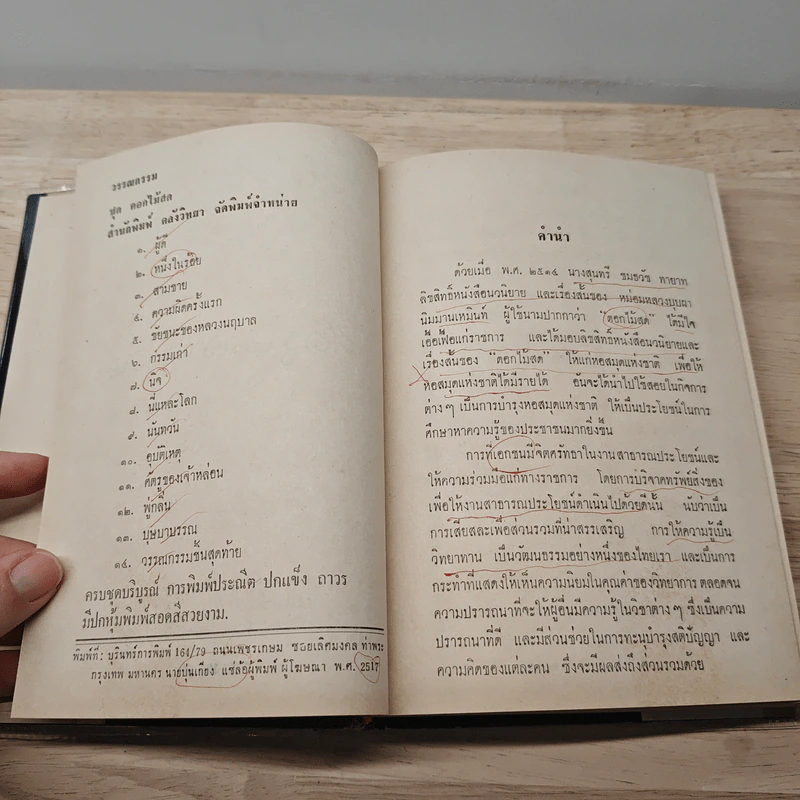 วรรณกรรม
ชุด ดอกไม้สด
สำนักพิมพ์ คลังวิทยา จัดพิมพ์จำหน่าย
๑. ผู้ดี
๒. หนึ่งในร้อย
๓. สามชาย
๔. ความผิดครั้งแรก
๕. ชัยชนะของหลวงนฤบาล
๖. กรรมเก่า
๗. นิจ
๘. นี่แหละโลก
๙. นันทวัน
๑๐. อุบัติเหตุ
๑๑. ศัตรูของเจ้าหล่อน
๑๒. พู่กลิ่น
๑๓. บุษบาบรรณ
๑๔. วรรณกรรมชิ้นสุดท้าย
ครบชุดบริบูรณ์ การพิมพ์ประณีต ปกแข็ง ถาวร
มีปกหุ้มพิมพ์สอดสีสวยงาม.
พิมพ์ที่: บุรินทร์การพิมพ์ 164/79 ถนนเพชรเกษม ซอยเลิศมงคล ท่าพระ
กรุงเทพ มหานคร นายบุ่นเกียง แซ่ล้อผู้พิมพ์ ผู้โฆษณา พ.ศ. 2517
คำนำ
ด้วยเมื่อ พ.ศ. ๒๕๑๔ นางสุนทรี ชมธวัช ทายาท
ลิขสิทธิ์หนังสือนวนิยาย และเรื่องสั้นของ หม่อมหลวงบุบผา
นิมมานเหมินท์ ผู้ใช้นามปากกาว่า "ดอกไม้สด" ได้มีใจ
เอื้อเฟื้อแก่ราชการ และได้มอบลิขสิทธิ์หนังสือนวนิยายและ
เรื่องสั้นของ "ดอกไม้สด" ให้แก่หอสมุดแห่งชาติ เพื่อให้
หอสมุดแห่งชาติได้มีรายได้ อันจะได้นำไปใช้สอยในกิจการ
ต่าง ๆ เป็นการบำรุงหอสมุดแห่งชาติ ให้เป็นประโยชน์ในการ
ศึกษาหาความรู้ของประชาชนมากยิ่งขึ้น
การที่เอกชนมีจิตศรัทธาในงานสาธารณประโยชน์และ
ให้ความร่วมมือแก่ทางราชการ โดยการบริจาคทรัพย์สิ่งของ
เพื่อให้งานสาธารณประโยชน์ดำเนินไปด้วยดีนั้น นับว่าเป็น
การเสียสละเพื่อส่วนรวมที่น่าสรรเสริญ การให้ความรู้เป็น
วิทยาทาน เป็นวัฒนธรรมอย่างหนึ่งของไทยเรา และเป็นการ
กระทำที่แสดงให้เห็นความนิยมในคุณค่าของวิทยาการ ตลอดจน
ความปรารถนาที่จะให้ผู้อื่นมีความรู้ในวิชาต่าง ๆ ซึ่งเป็นความ
ปรารถนาที่ดี และมีส่วนช่วยในการทะนุบำรุงสติปัญญา และ
ความคิดของแต่ละคน ซึ่งจะมีผลส่งถึงส่วนรวมด้วย